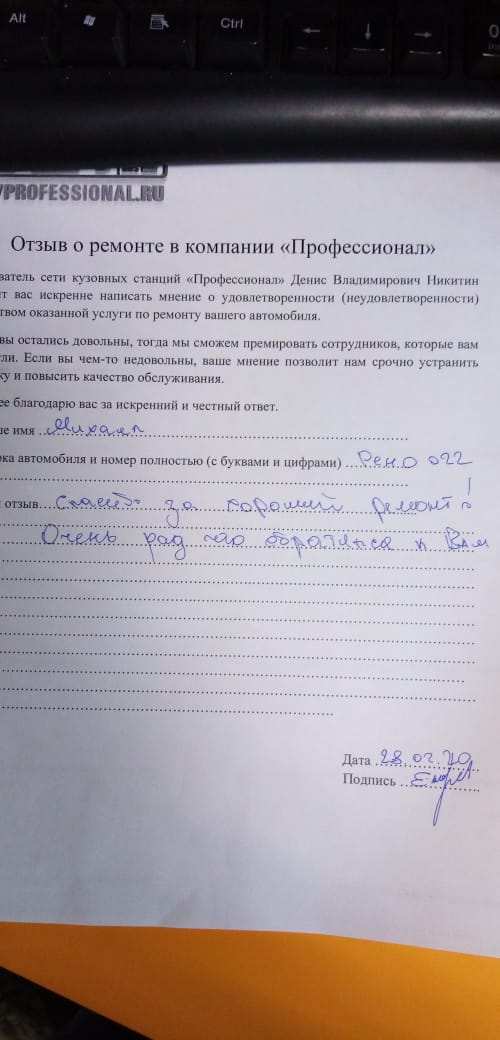 Alt
Ctrl
PROFESSIONAL.RU
Отзыв о ремонте в компании «Профессионал»
ватель сети кузовных станций «Профессионал» Денис Владимирович Никитин
т вас искренне написать мнение о удовлетворенности (неудовлетворенности)
твом оказанной услуги по ремонту вашего автомобиля.
вы остались довольны, тогда мы сможем премировать сотрудников, которые вам
ли. Если вы чем-то недовольны, ваше мнение позволит нам срочно устранить
ку и повысить качество обслуживания.
ее благодарю вас за искренний и честный ответ.
ше имя Михаил
рка автомобиля и номер полностью (с буквами и цифрами) Рено 022
отзыв Спасибо за хороший ремонт!
Очень рад что обратился к Вам
Дата 28.02.20
Подпись